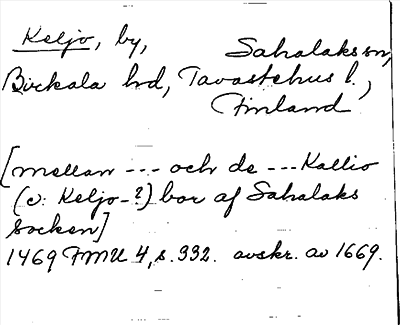 Keljo, by, Sahalaks sn,
Birkala hd, Tavastehus l.,
Finland
[mellan --- och de --- Kallio
(ɔ: Keljo-?) boar af Sahalaks
Socken]
1469 FMU 4, s. 332. avskr. av 1669.